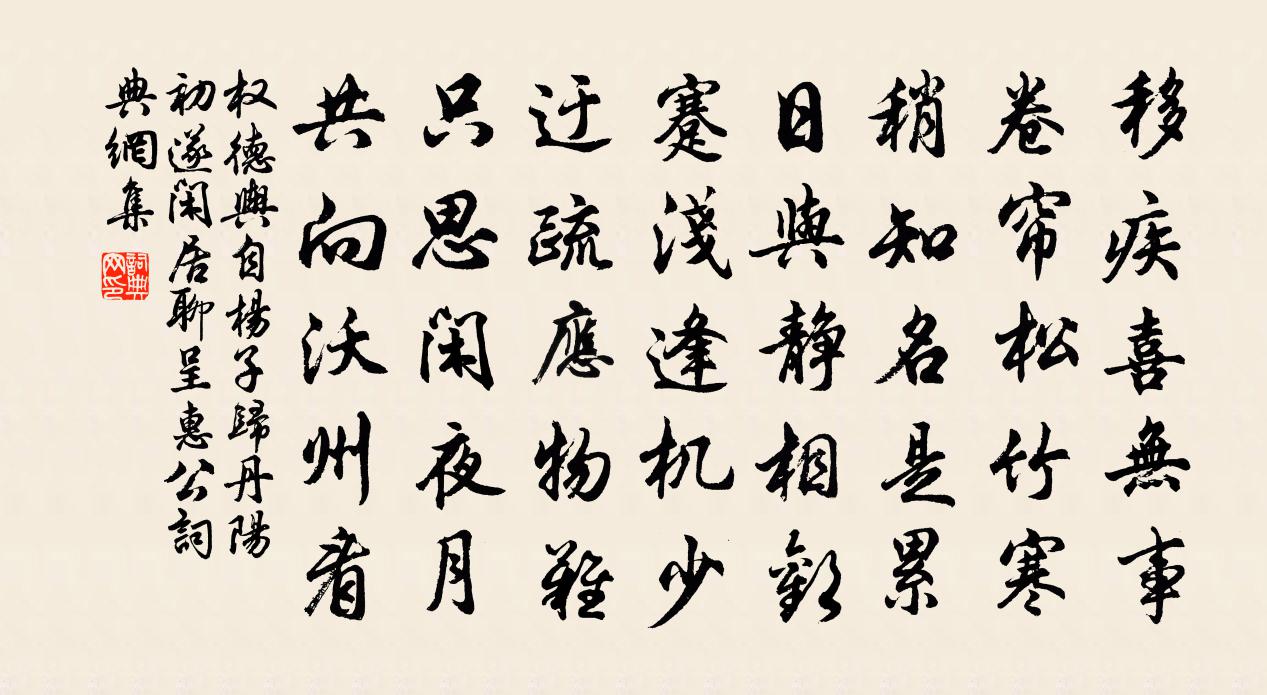 移疾喜無事
卷帘松竹寒
稍知名是累
日與静相歡
蹇淺逢机少
迂疏應物難
只思閑夜月
共向沃州看
权德輿自楊子歸丹陽
初遂閑居聊呈惠公詞
典網集
詞典
网印